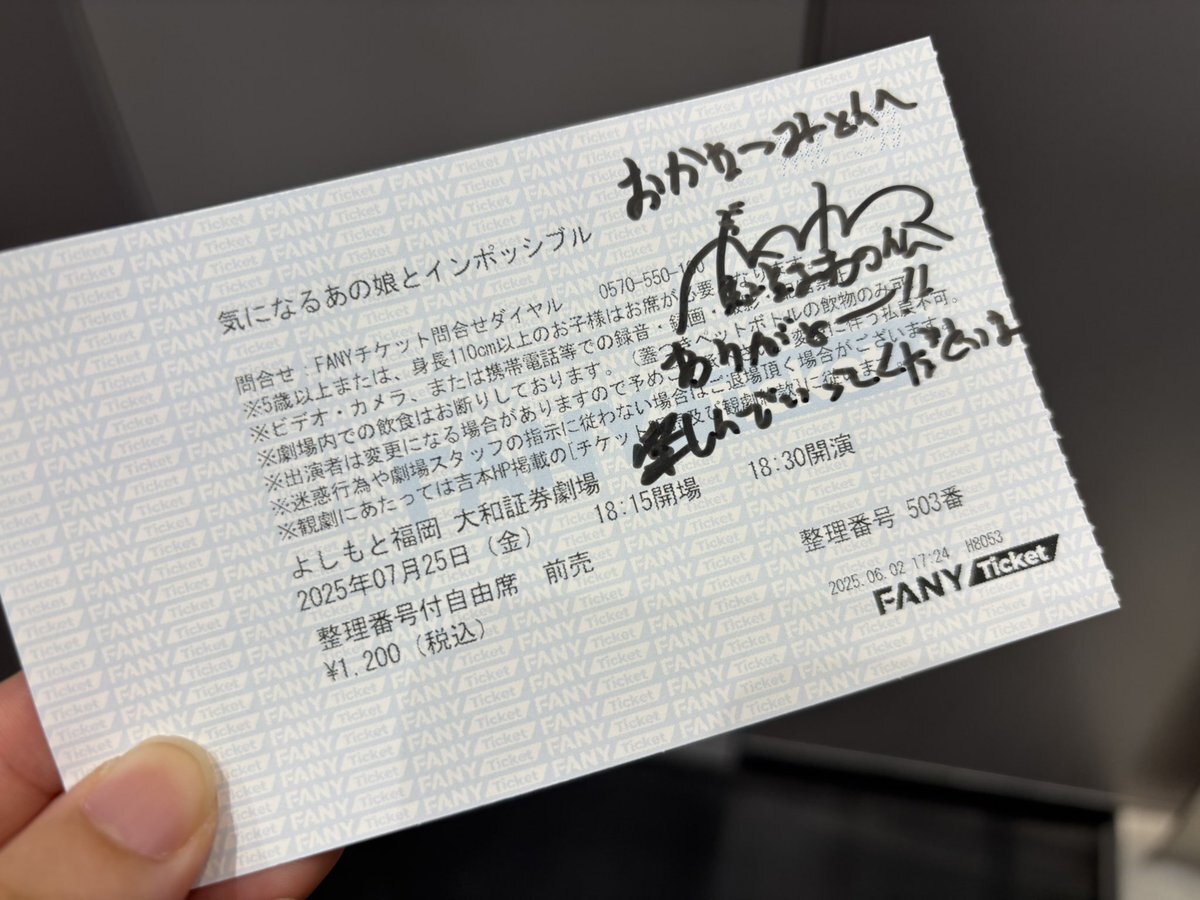 おかなつみさんへ
気になるあの娘とインポッシブル
問合せ:FANYチケット問合せダイヤル 0570-550-1
※5歳以上または、身長110cm以上のお子様はお席が必要となります。
※ビデオ・カメラ、または携帯電話等での録音・録画・撮影・
※劇場内での飲食はお断りしております。(蓋つきペットボトルの飲物のみ可)
※出演者は変更になる場合がありますので予めご
変更に伴う払戻不可。
※迷惑行為や劇場スタッフの指示に従わない場合はご退場頂く場合がございます。
※観劇にあたっては吉本HP掲載の[チケット
及び観劇
ありがとー!!
楽しんでいってくださいね
よしもと福岡 大和証券劇場
2025年07月25日(金) 18:15開場 18:30開演
整理番号付自由席 前売 整理番号 503番
¥1,200(税込)
2025.06.02 17:24 H8053
FANY Ticket